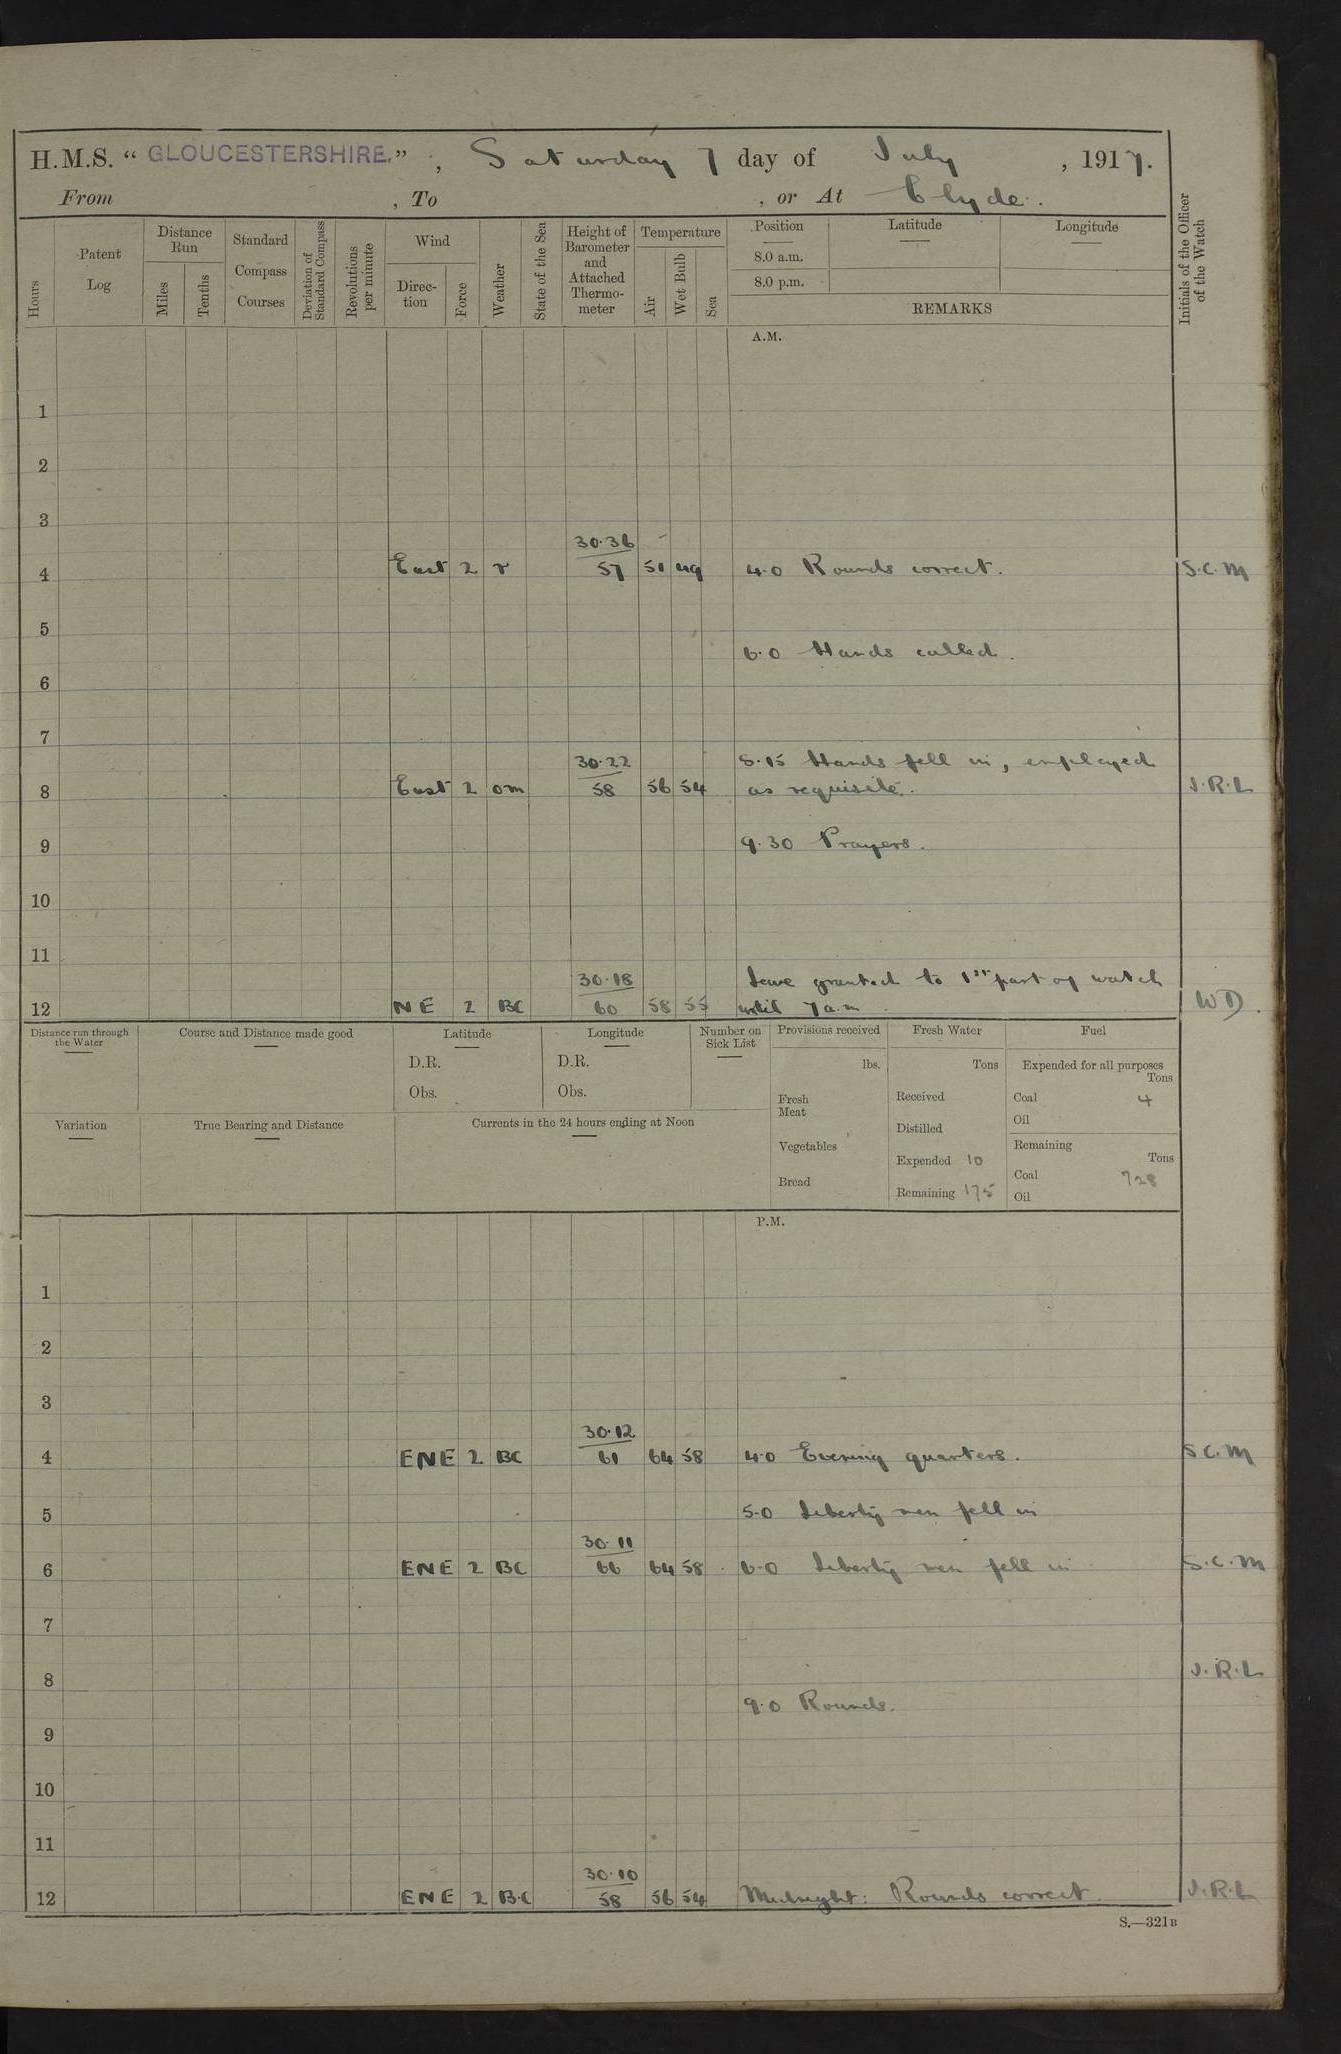 H.M.S. “ GLOUCESTERSHIRE. ” , Saturday 7 day of July , 1917.
From , To , or At Clyde.
Hours
Patent Log
Distance Run
Miles
Tenths
Standard Compass Courses
Deviation of Standard Compass
Revolutions per minute
Wind
Direction
Force
Weather
State of the Sea
Height of Barometer and Attached Thermometer
Temperature
Air
Wet Bulb
Sea
Position
8.0 a.m.
8.0 p.m.
Latitude
Longitude
REMARKS
Initials of the Officer of the Watch
A.M.
1
2
3
30.36
4 East 2 r 57 51 49 4.0 Rounds correct. S.C.M
5
6.0 Hands called.
6
7
30.22 8.15 Hands fell in, employed
8 East 2 om 58 56 54 as requisite. J.R.L
9 9.30 Prayers.
10
11
30.18 Leave granted to 1st part of watch
12 NE 2 BC 60 58 55 until 7 a.m. WD.
Distance run through the Water
Course and Distance made good
Latitude
D.R.
Obs.
Longitude
D.R.
Obs.
Number on Sick List
Provisions received
lbs.
Fresh Meat
Vegetables
Bread
Fresh Water
Tons
Received
Distilled
Expended 10
Remaining 175
Fuel
Expended for all purposes
Tons
Coal 4
Oil
Remaining
Tons
Coal 728
Oil
Variation
True Bearing and Distance
Currents in the 24 hours ending at Noon
P.M.
1
2
3
30.12
4 ENE 2 BC 61 64 58 4.0 Evening quarters. S.C.M
5 5.0 Liberty men fell in
30.11
6 ENE 2 BC 66 64 58 6.0 Liberty men fell in S.C.M
7
8 J.R.L
9.0 Rounds.
9
10
11
30.10
12 ENE 2 B.C 58 56 54 Midnight: Rounds correct. J.R.L
S.—321B